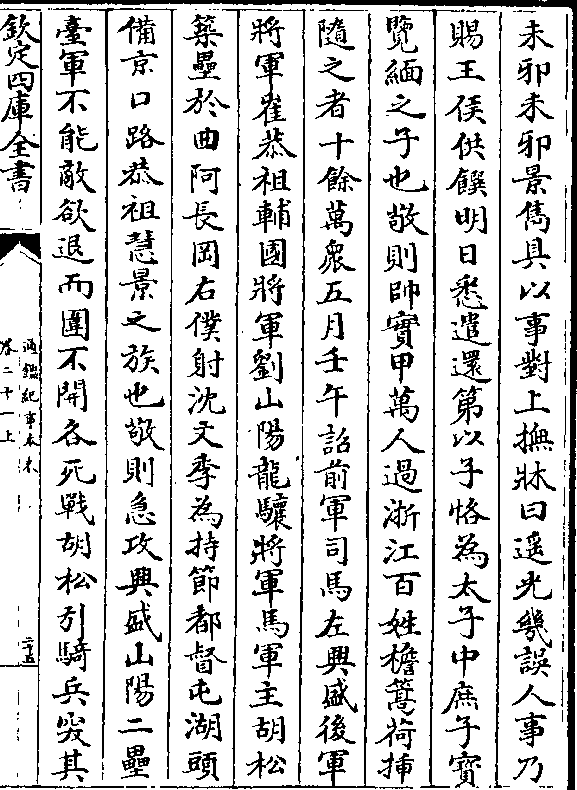 未邪未邪景雋具以事對上撫牀曰遥光幾誤人事乃
賜王侯供饌明日悉遣還第以子恪為太子中庶子寳
覽緬之子也敬則帥實甲萬人過浙江百姓檐篙荷挿
隨之者十餘萬衆五月壬午詔前軍司馬左興盛後軍
將軍崔恭祖輔國將軍劉山陽龍驤將軍馬軍主胡松
築壘於曲阿長岡右僕射沈文季為持節都督屯湖頭
備京口路恭祖慧景之族也敬則急攻興盛山陽二壘
臺軍不能敵欲退而圍不開各死戰胡松引騎兵突其
欽定四庫全書
通鑑紀事本末
卷二十一上
二十五